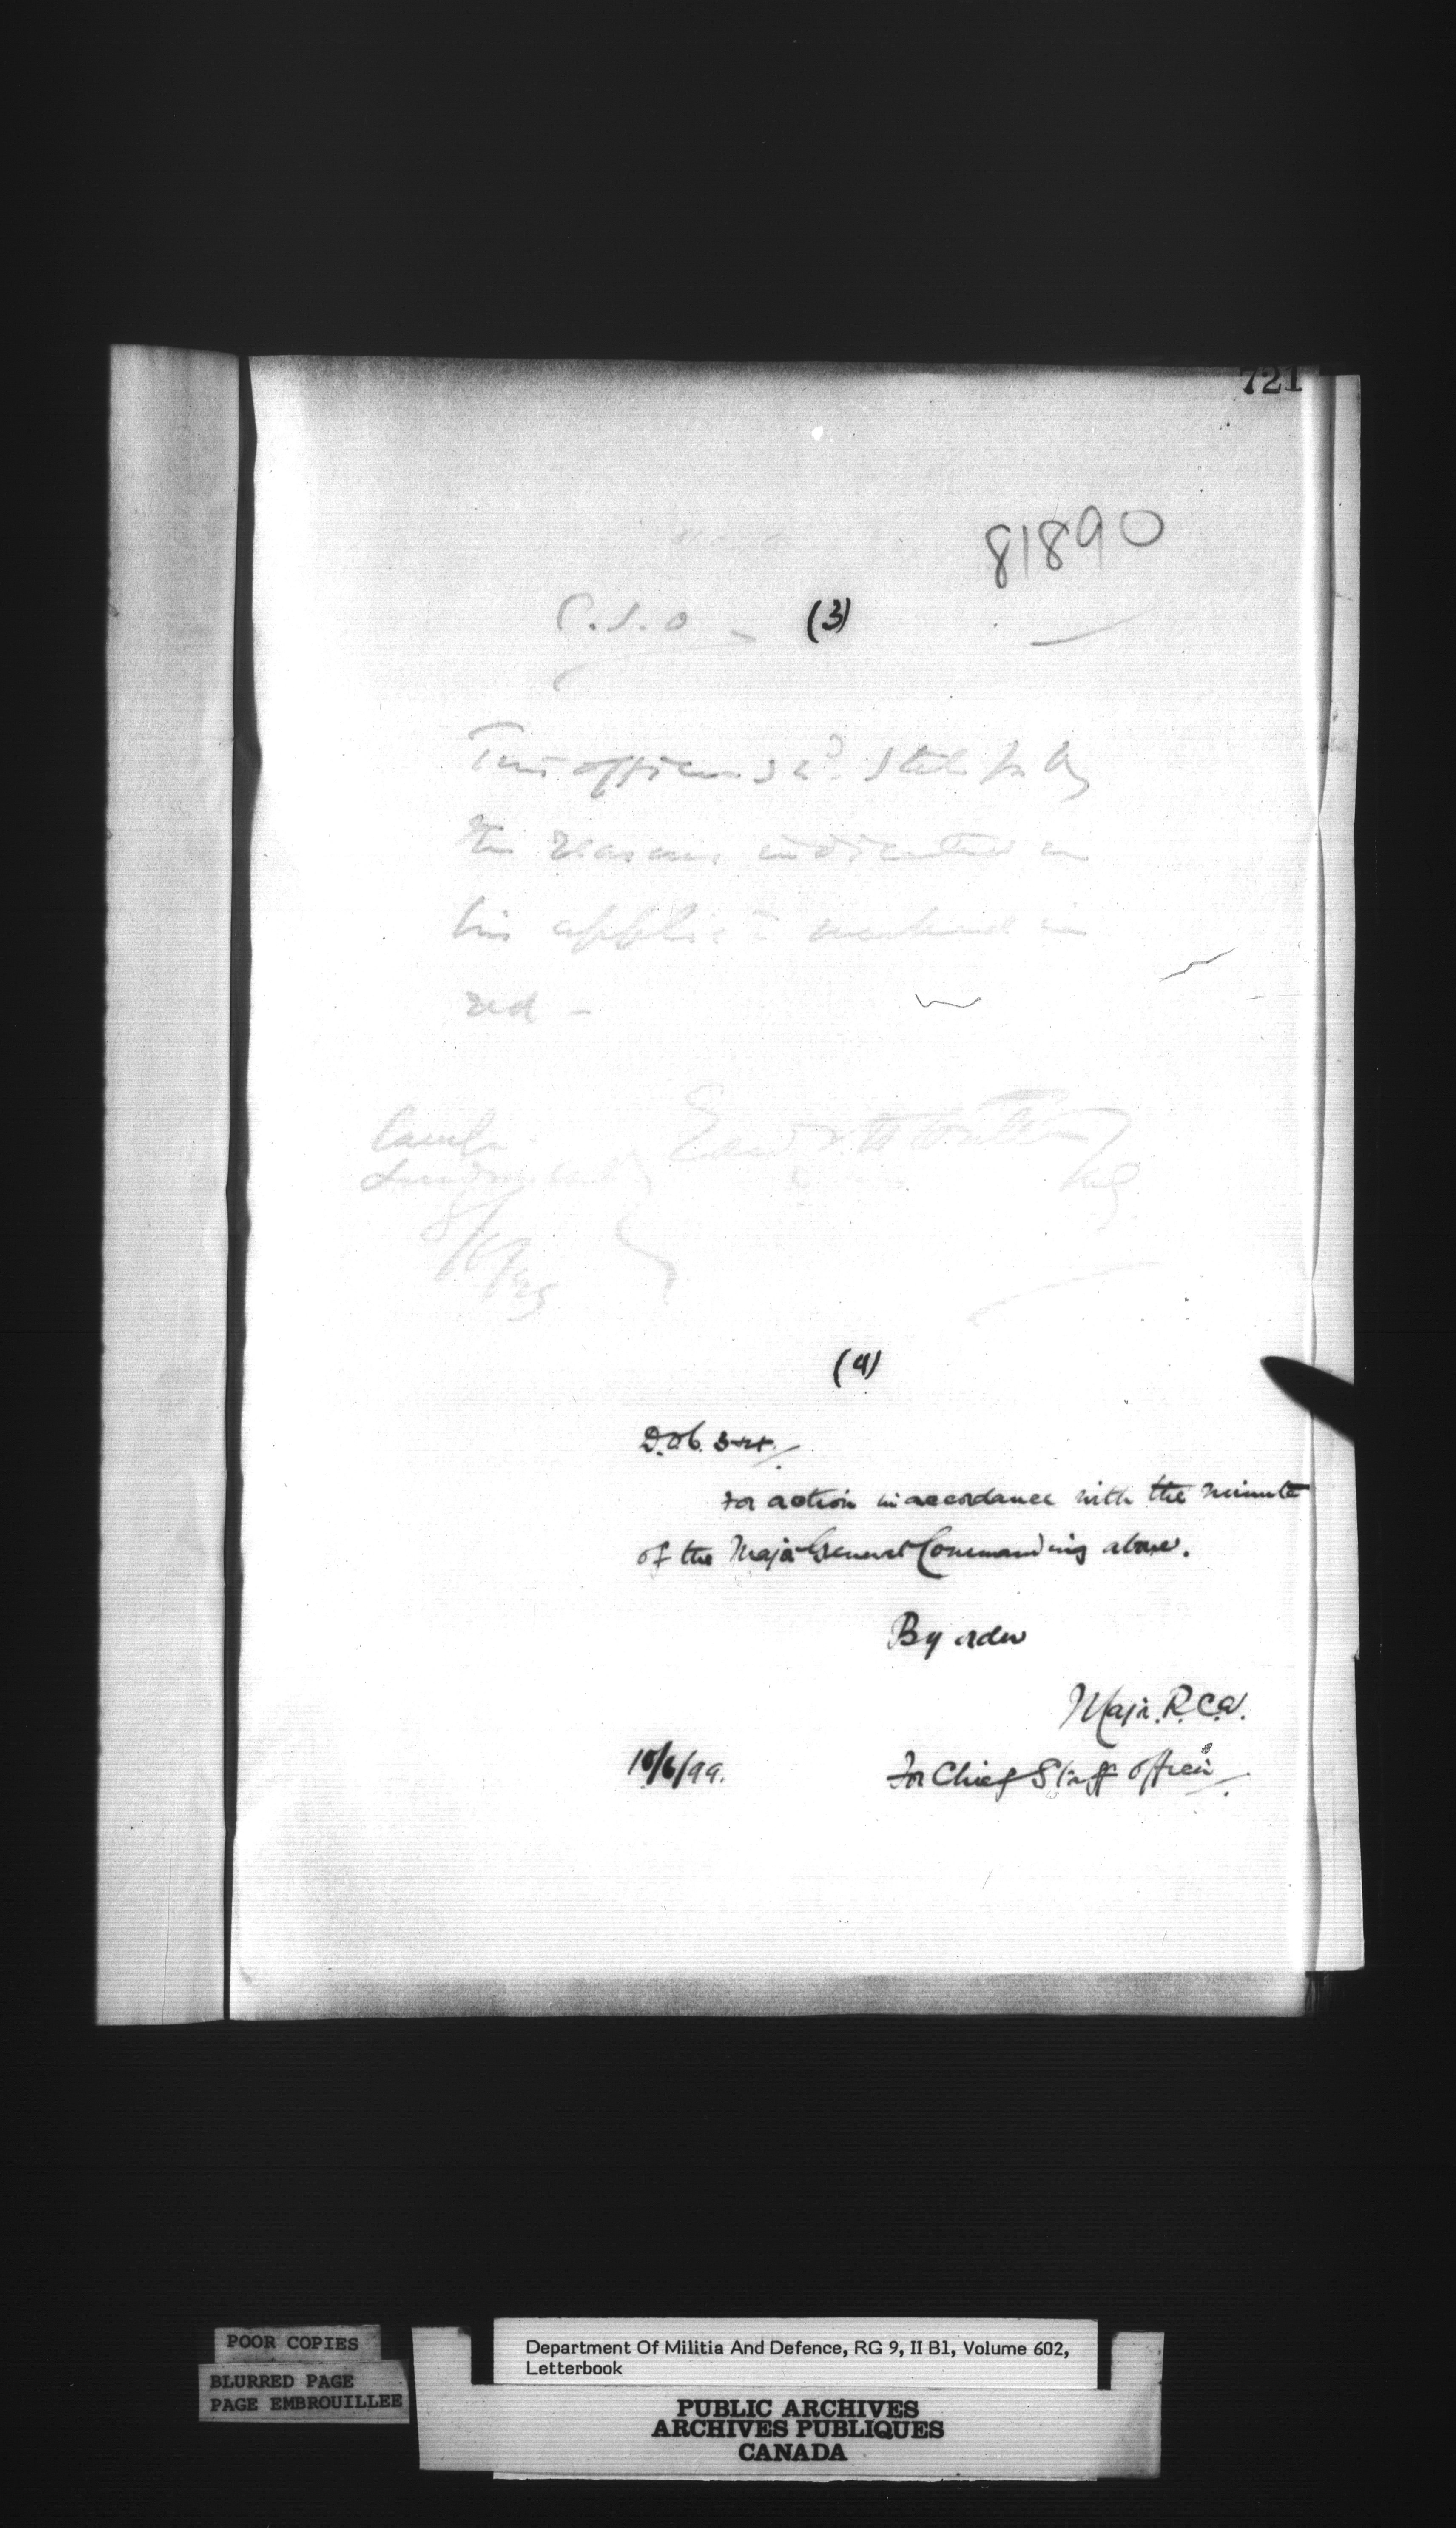 721
81890
C.S.O - (3)
This officer shd. state fully
the reasons indicated in
his applicn marked in
red -
Camp
8/6/99
(4)
D.O.C. 3+4.
For action in accordance with the minute
of the Major General Commanding above.
By order
Major. R.C.A.
10/6/99. For Chief Staff Officer
POOR COPIES
BLURRED PAGE
PAGE EMBROUILLEE
Department Of Militia And Defence, RG 9, II B1, Volume 602,
Letterbook
PUBLIC ARCHIVES
ARCHIVES PUBLIQUES
CANADA